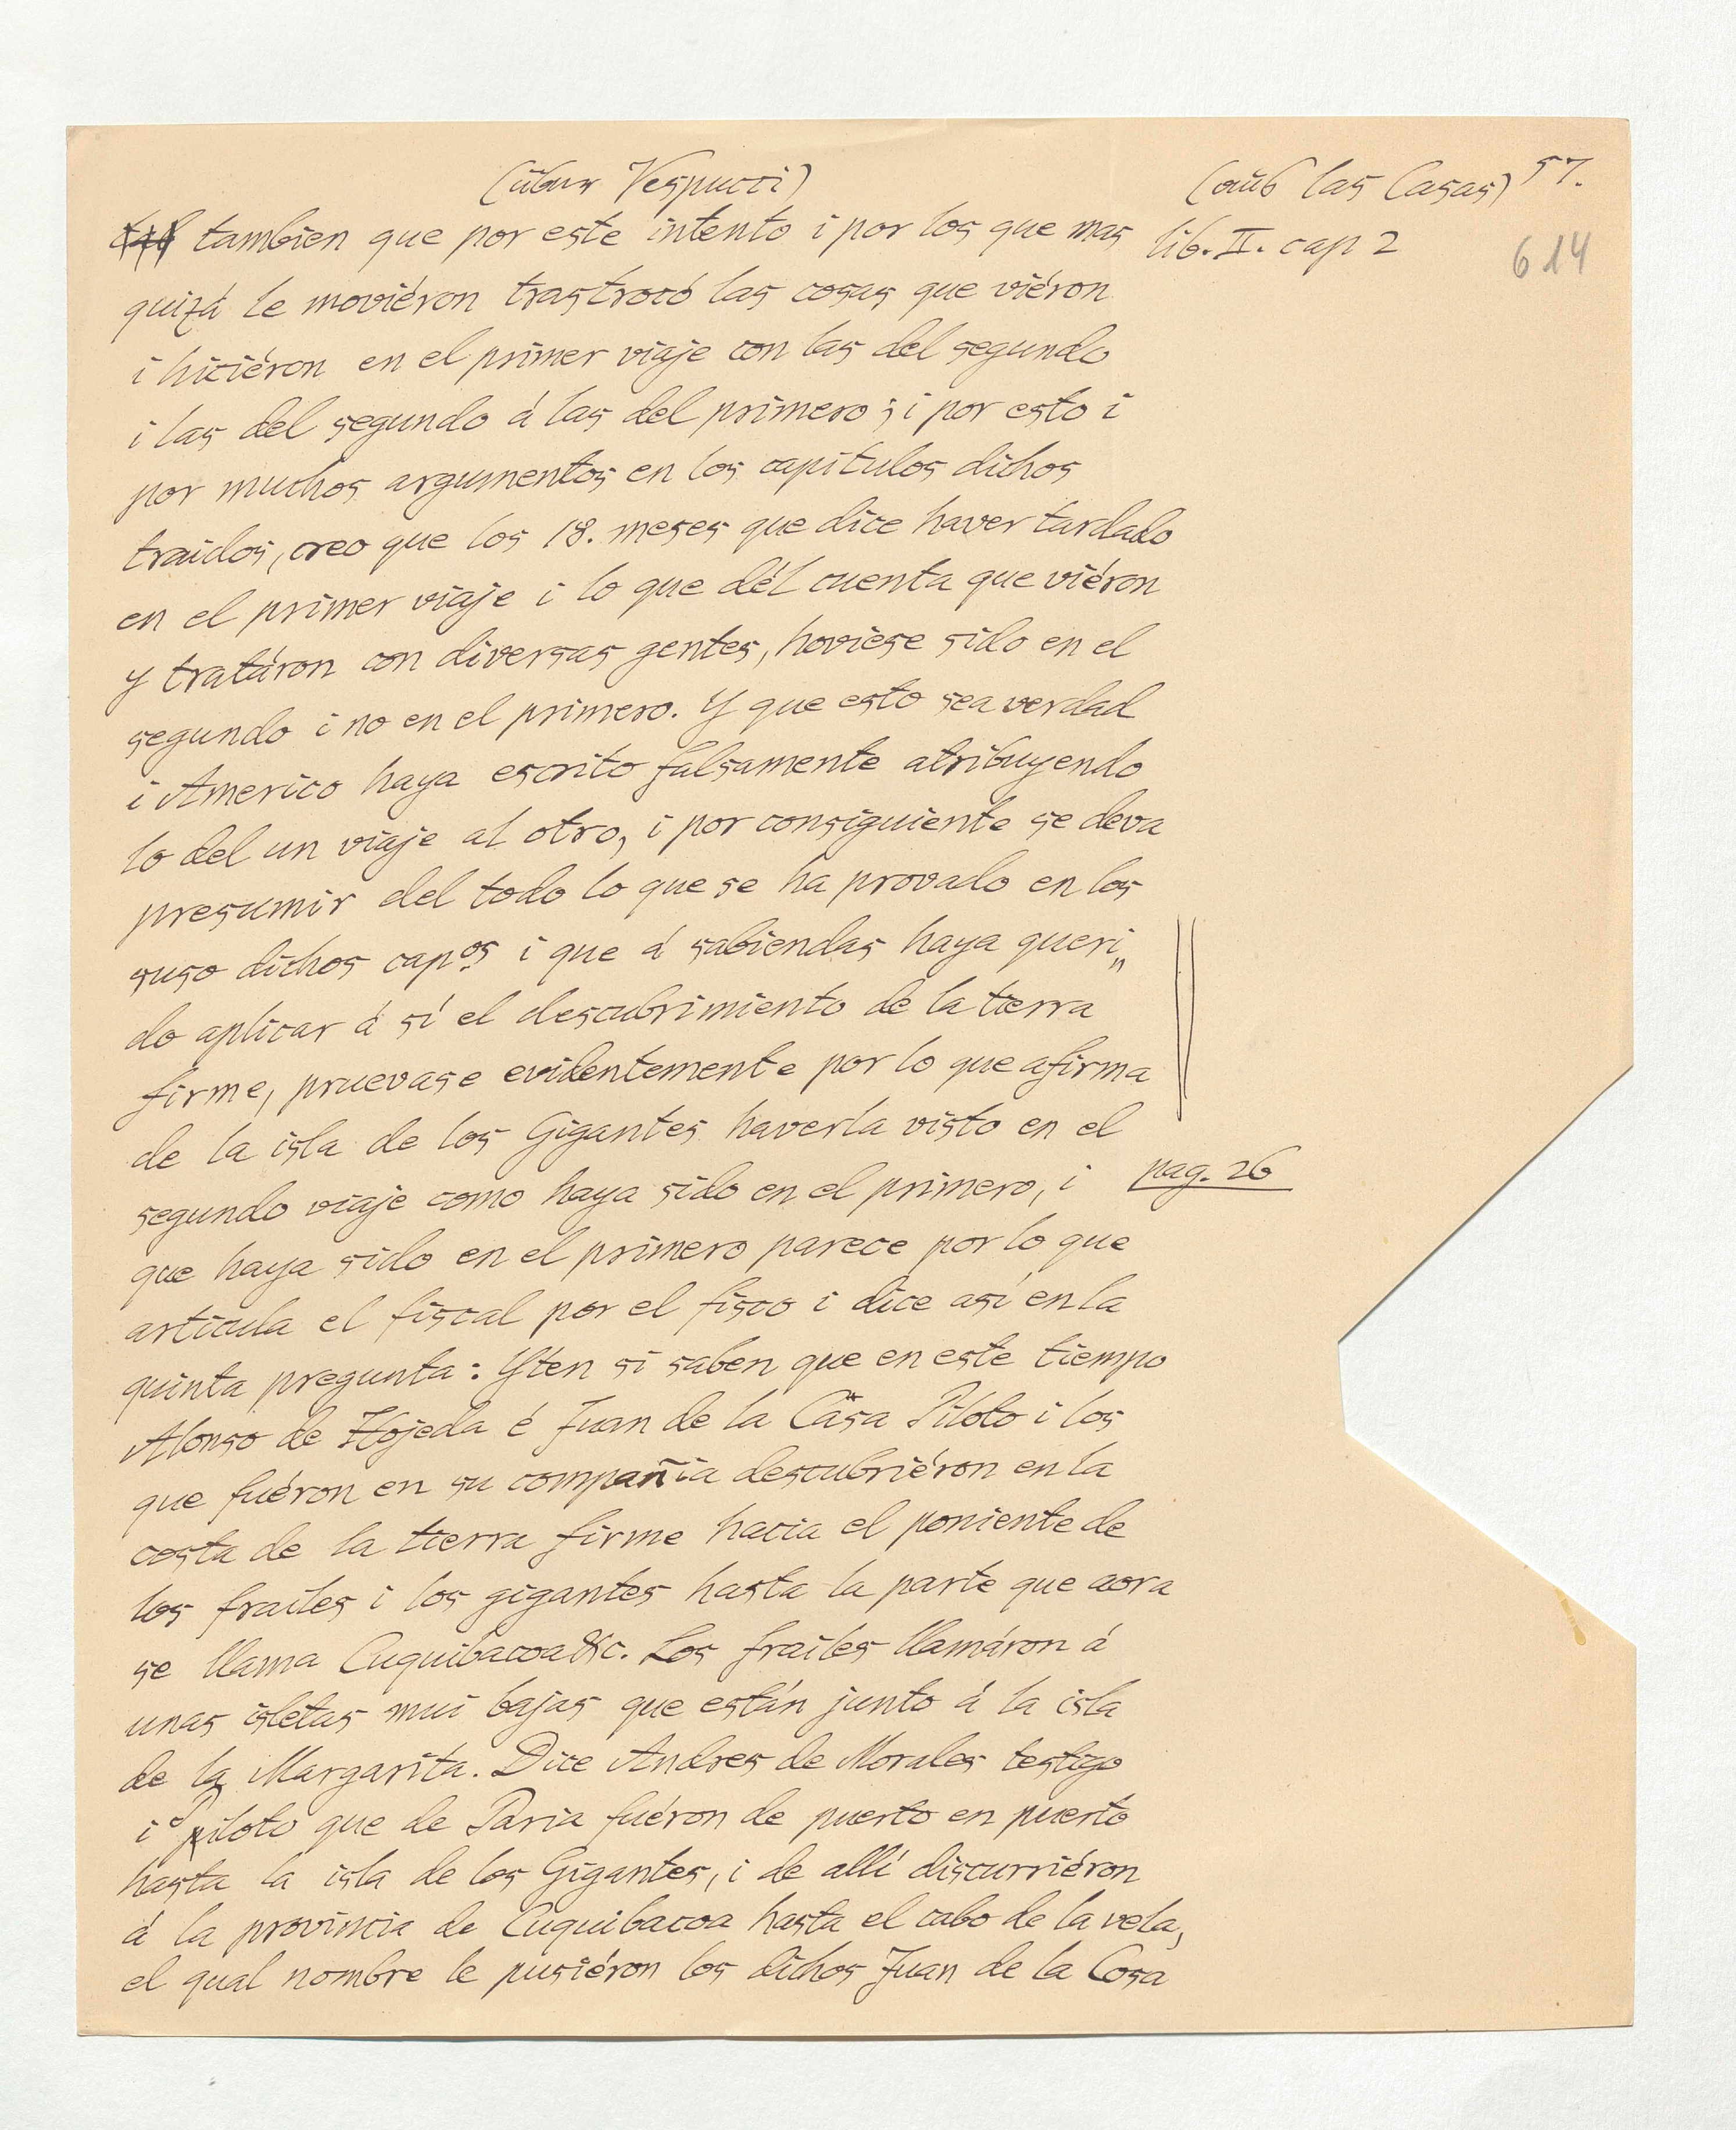 (über Vespucci)
(aus las Casas) 57.
tambien que por este intento i por los que mas
lib. II. cap 2
614
quizá le moviéron trastrocó las cosas que viéron
i hiciéron en el primer viaje con las del segundo
i las del segundo á las del primero; i por esto i
por muchos argumentos en los capítulos dichos
traidos, creo que los 18. meses que dice haver tardado
en el primer viaje i lo que dél cuenta que viéron
y tratáron con diversas gentes, hoviese sido en el
segundo i no en el primero. Y que esto sea verdad
i Americo haya escrito falsamente atribuyendo
lo del un viaje al otro, i por consiguiente se deva
presumir del todo lo que se ha provado en los
suso dichos capos i que á sabiendas haya queri„
do aplicar á sí el descubrimiento de la tierra
firme, pruevase evidentemente por lo que afirma
de la isla de los Gigantes haverla visto en el
segundo viaje como haya sido en el primero, i
pag. 26
que haya sido en el primero parece por lo que
articula el fiscal por el fisco i dice así en la
quinta pregunta: Yten si saben que en este tiempo
Alonso de Hojeda é Juan de la Casa Piloto i los
que fuéron en su compañia descubriéron en la
costa de la tierra firme hacia el poniente de
los frailes i los gigantes hasta la parte que aora
se llama Cuquibacoa &c. Los frailes llamáron á
unas isletas mui bajas que están junto á la isla
de la Margarita. Dice Andres de Morales testigo
i piloto que de Paria fuéron de puerto en puerto
hasta la isla de los Gigantes, i de allí discurriéron
á la provincia de Cuquibacoa hasta el cabo de la vela,
el qual nombre le pusiéron los dichos Juan de la Cosa